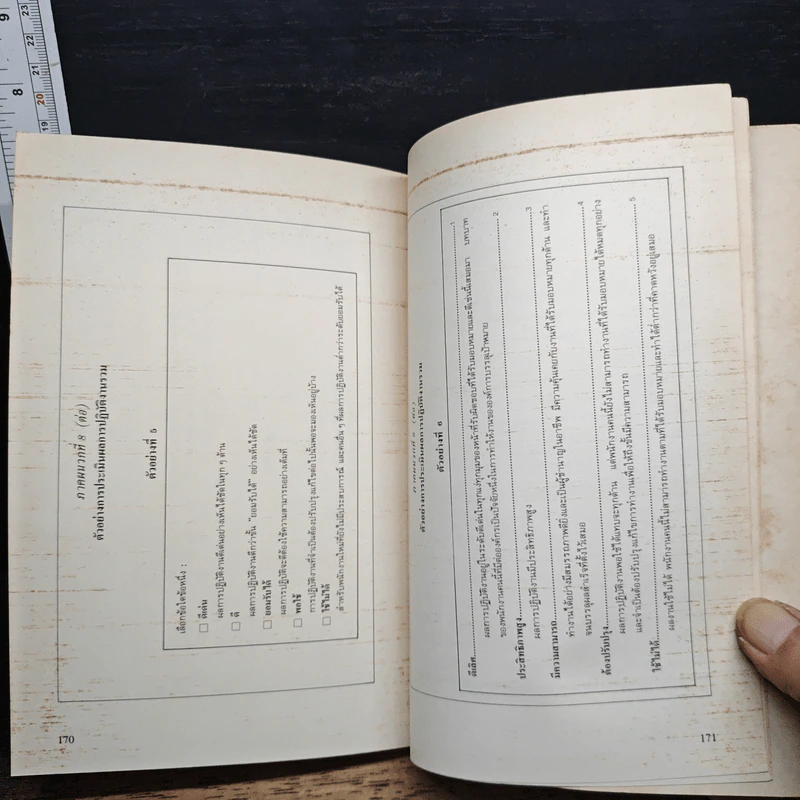 ภาคผนวกที่ 8 (ต่อ)
ตัวอย่างการประเมินผลการปฏิบัติงานรวม
ตัวอย่างที่ 5
เลือกข้อใดข้อหนึ่ง :
ดีเด่น
ผลการปฏิบัติงานดีเด่นอย่างเห็นได้ชัดในทุก ๆ ด้าน
ดี
ผลการปฏิบัติงานดีกว่าขั้น "ยอมรับได้" อย่างเห็นได้ชัด
ยอมรับได้
ผลการปฏิบัติจะดีต้องใช้ความสามารถอย่างเต็มที่
พอใช้
การปฏิบัติงานที่จำเป็นต้องปรับปรุงแก้ไขต่อไปนั้นพอจะมองเห็นอยู่บ้าง
ใช้ไม่ได้
สำหรับพนักงานใหม่ที่ยังไม่มีประสบการณ์ และคนอื่น ๆ ที่ผลการปฏิบัติงานต่ำกว่าระดับยอมรับได้
170
ตัวอย่างที่ 6
ดีเลิศ 1
ผลการปฏิบัติงานอยู่ในระดับดีเด่นในทุกแง่ทุกมุมของหน้าที่รับผิดชอบที่ได้รับมอบหมายและดีเช่นนี้เสมอมา บทบาท
ของพนักงานคนนี้ที่มีต่อองค์การเป็นปัจจัยหนึ่งในการทำให้งานขององค์การบรรลุเป้าหมาย
ประสิทธิภาพสูง 2
ผลการปฏิบัติงานมีประสิทธิภาพสูง
มีความสามารถ 3
ทำงานได้อย่างมีสมรรถภาพดียิ่งและเป็นผู้ชำนาญในอาชีพ มีความคุ้นเคยกับงานที่ได้รับมอบหมายทุกด้าน และทำ
จนบรรลุผลสำเร็จที่ตั้งไว้เสมอ
ต้องปรับปรุง 4
ผลการปฏิบัติงานพอใช้ได้แทบจะทุกด้าน แต่พนักงานคนนี้ยังไม่สามารถทำงานที่ได้รับมอบหมายได้หมดทุกอย่าง
และจำเป็นต้องปรับปรุงแก้ไขการทำงานเพื่อให้ถึงขั้นมีความสามารถ
ใช้ไม่ได้ 5
ผลงานใช้ไม่ได้ พนักงานคนนี้ไม่สามารถทำงานตามที่ได้รับมอบหมายและทำได้ต่ำกว่าที่คาดหวังอยู่เสมอ
171
8
9
20
21
22
23